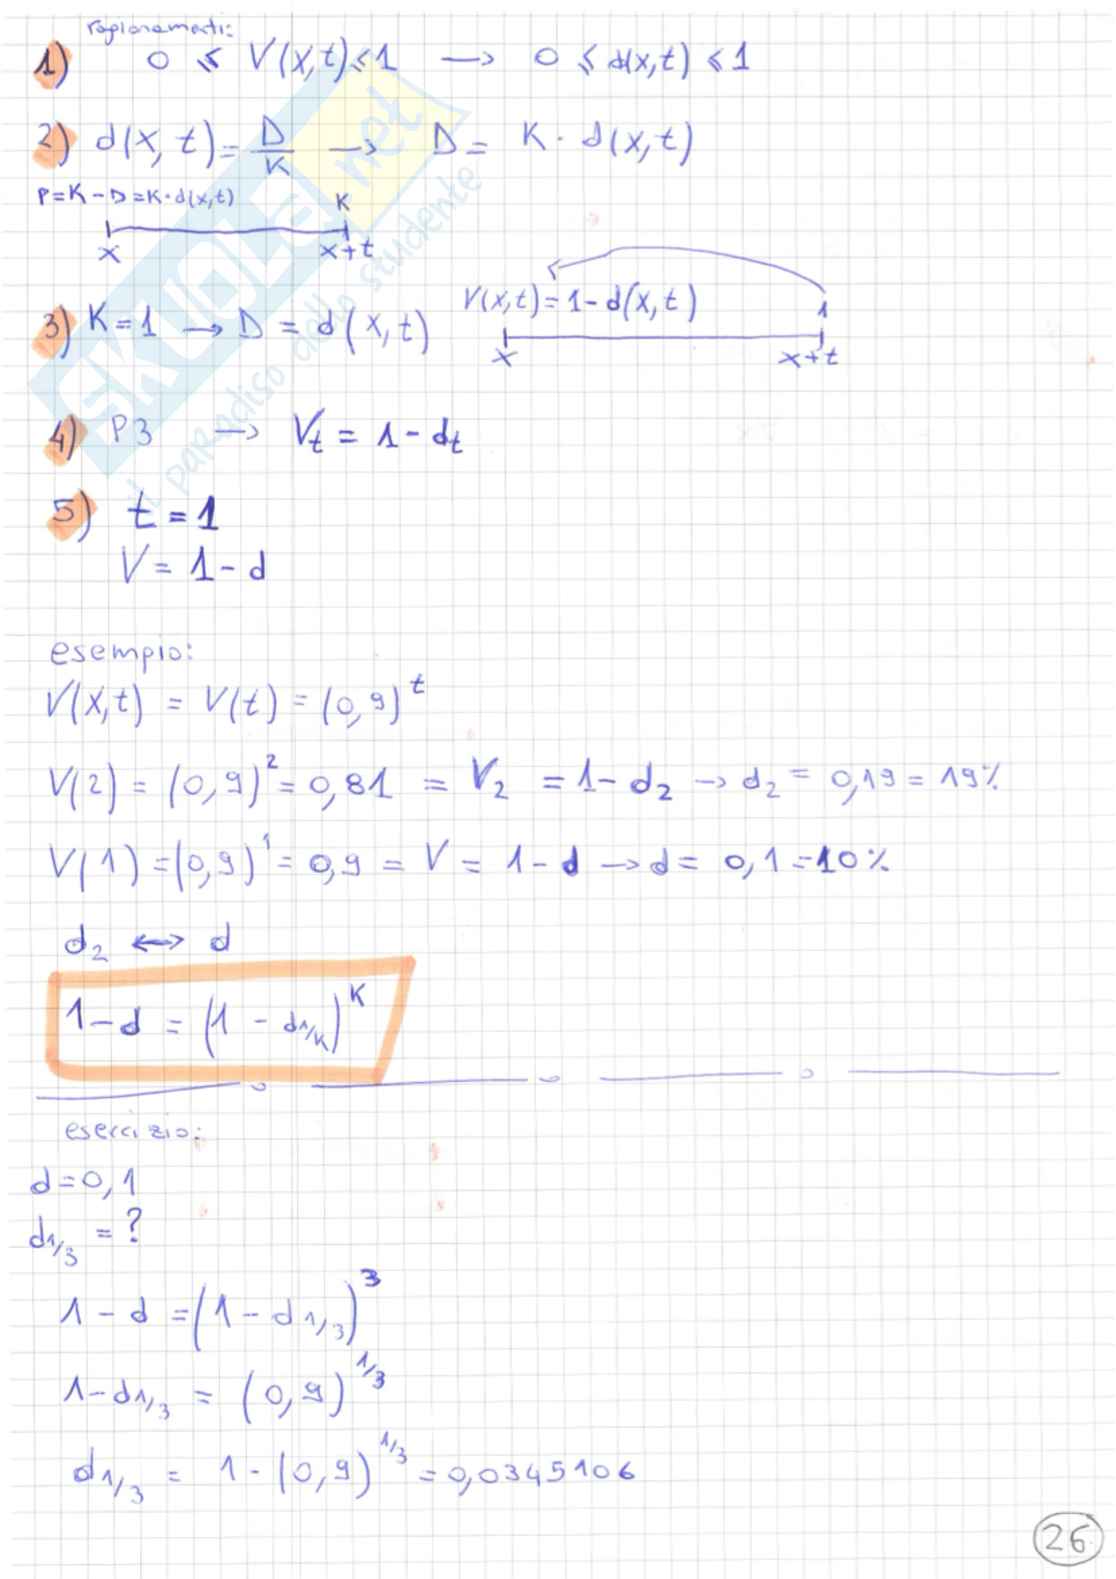 ragionamenti:
1) 0 ≤ V(x,t) ≤ 1 → 0 ≤ d(x,t) ≤ 1
2) d(x,t) = D/K → D = K · d(x,t)
P=K-D=K·d(x,t) K
x x+t
3) K=1 → D = d(x,t) V(x,t) = 1-d(x,t) 1
x x+t
4) P3 → Vt = 1-dt
5) t = 1
V = 1-d
esempio:
V(x,t) = V(t) = (0,9)^t
V(2) = (0,9)^2 = 0,81 = V2 = 1-d2 → d2 = 0,19 = 19%
V(1) = (0,9)^1 = 0,9 = V = 1-d → d = 0,1 = 10%
d2 ↔ d
1-d = (1 - d1/K)^K
esercizio:
d=0,1
d1/3 = ?
1-d = (1-d1/3)^3
1-d1/3 = (0,9)^1/3
d1/3 = 1-(0,9)^1/3 = 0,0345106
26
SKUOLA.net
il paradiso dello studente